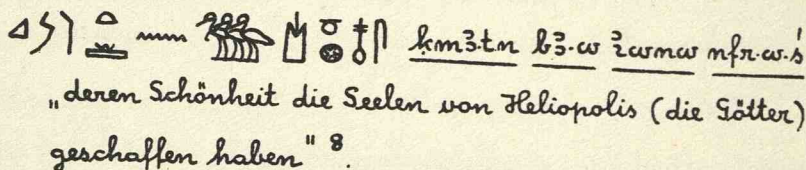 ḳmꜣ.t.n bꜣ.w ꞽwnw nfr.w.ś
„deren Schönheit die Seelen von Heliopolis (die Götter)
geschaffen haben" 8.